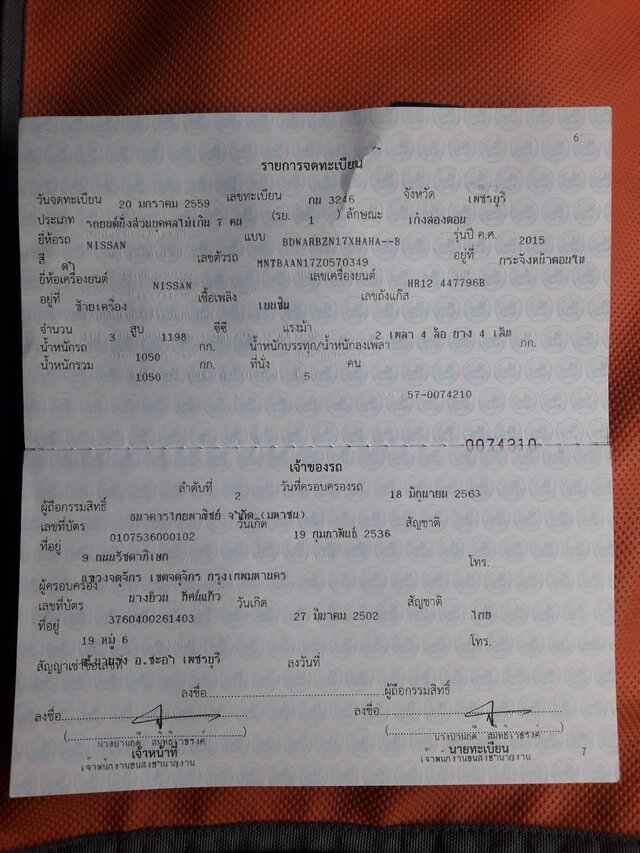 6
รายการจดทะเบียน
วันจดทะเบียน 20 มกราคม 2559 เลขทะเบียน กน 3246 จังหวัด เพชรบุรี
ประเภท รถยนต์นั่งส่วนบุคคลไม่เกิน 7 คน (รย. 1) ลักษณะ เก๋งสองตอน
ยี่ห้อรถ NISSAN แบบ BDWARBZN17XHAHA--B รุ่นปี ค.ศ. 2015
สี ดำ เลขตัวรถ MNTBAAN17Z0570349 อยู่ที่ กระจังหน้าตอนใน
ยี่ห้อเครื่องยนต์ NISSAN เลขเครื่องยนต์ HR12 447796B
อยู่ที่ ซ้ายเครื่อง เชื้อเพลิง เบนซิน เลขถังแก๊ส
จำนวน 3 สูบ 1198 ซีซี แรงม้า 2 เพลา 4 ล้อ ยาง 4 เส้น
น้ำหนักรถ 1050 กก. น้ำหนักบรรทุก/น้ำหนักลงเพลา กก.
น้ำหนักรวม 1050 กก. ที่นั่ง 5 คน
57-0074210
0074210
เจ้าของรถ
ลำดับที่ 2 วันที่ครอบครองรถ 18 มิถุนายน 2563
ผู้ถือกรรมสิทธิ์ ธนาคารไทยพาณิชย์ จำกัด (มหาชน)
เลขที่บัตร 0107536000102 วันเกิด 19 กุมภาพันธ์ 2536 สัญชาติ
ที่อยู่ 9 ถนนรัชดาภิเษก โทร.
แขวงจตุจักร เขตจตุจักร กรุงเทพมหานคร
ผู้ครอบครอง นางย้วน
เลขที่บัตร 3760400261403 วันเกิด 27 มีนาคม 2502 สัญชาติ ไทย
ที่อยู่ 19 หมู่ 6 โทร.
อ.ชะอำ เพชรบุรี
สัญญาเช่าซื้อเลขที่ ลงวันที่
ลงชื่อ ผู้ถือกรรมสิทธิ์
ลงชื่อ ลงชื่อ
เจ้าหน้าที่ นายทะเบียน
เจ้าพนักงานขนส่งชำนาญงาน เจ้าพนักงานขนส่งชำนาญงาน
7